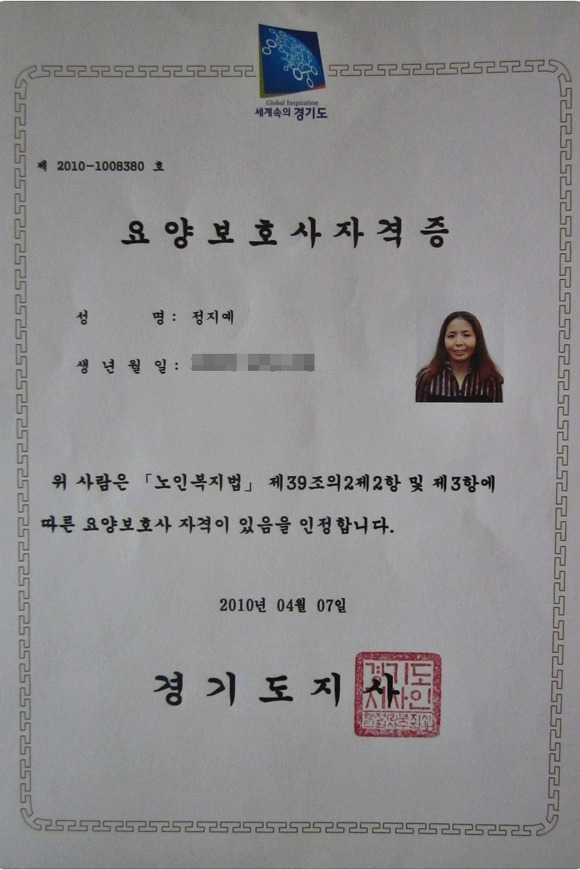 Global Inspiration
세계속의 경기도
제 2010-1008380 호
요양보호사자격증
성 명 : 정지예
생년월일 :
위 사람은 「노인복지법」 제39조의2제2항 및 제3항에
따른 요양보호사 자격이 있음을 인정합니다.
2010년 04월 07일
경기도지사
경기도
지사인